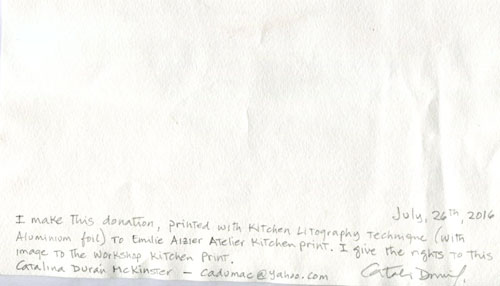 July, 26th, 2016
I make this donation, printed with Kitchen Litography Technique (with
Aluminium foil) to Emilie Aizier Atelier Kitchen print. I give the rights to this
image to the Workshop Kitchen Print.
Catalina Durán McKinster - cadumac@yahoo.com